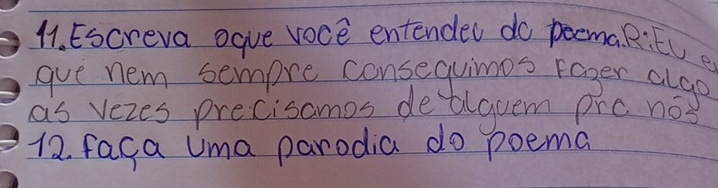 11. Escreva oque você entendeu do poema. R: Eu e
que nem sempre conseguimos fazer algo
as vezes precisamos de alguem pra nós
12. faça uma parodia do poema